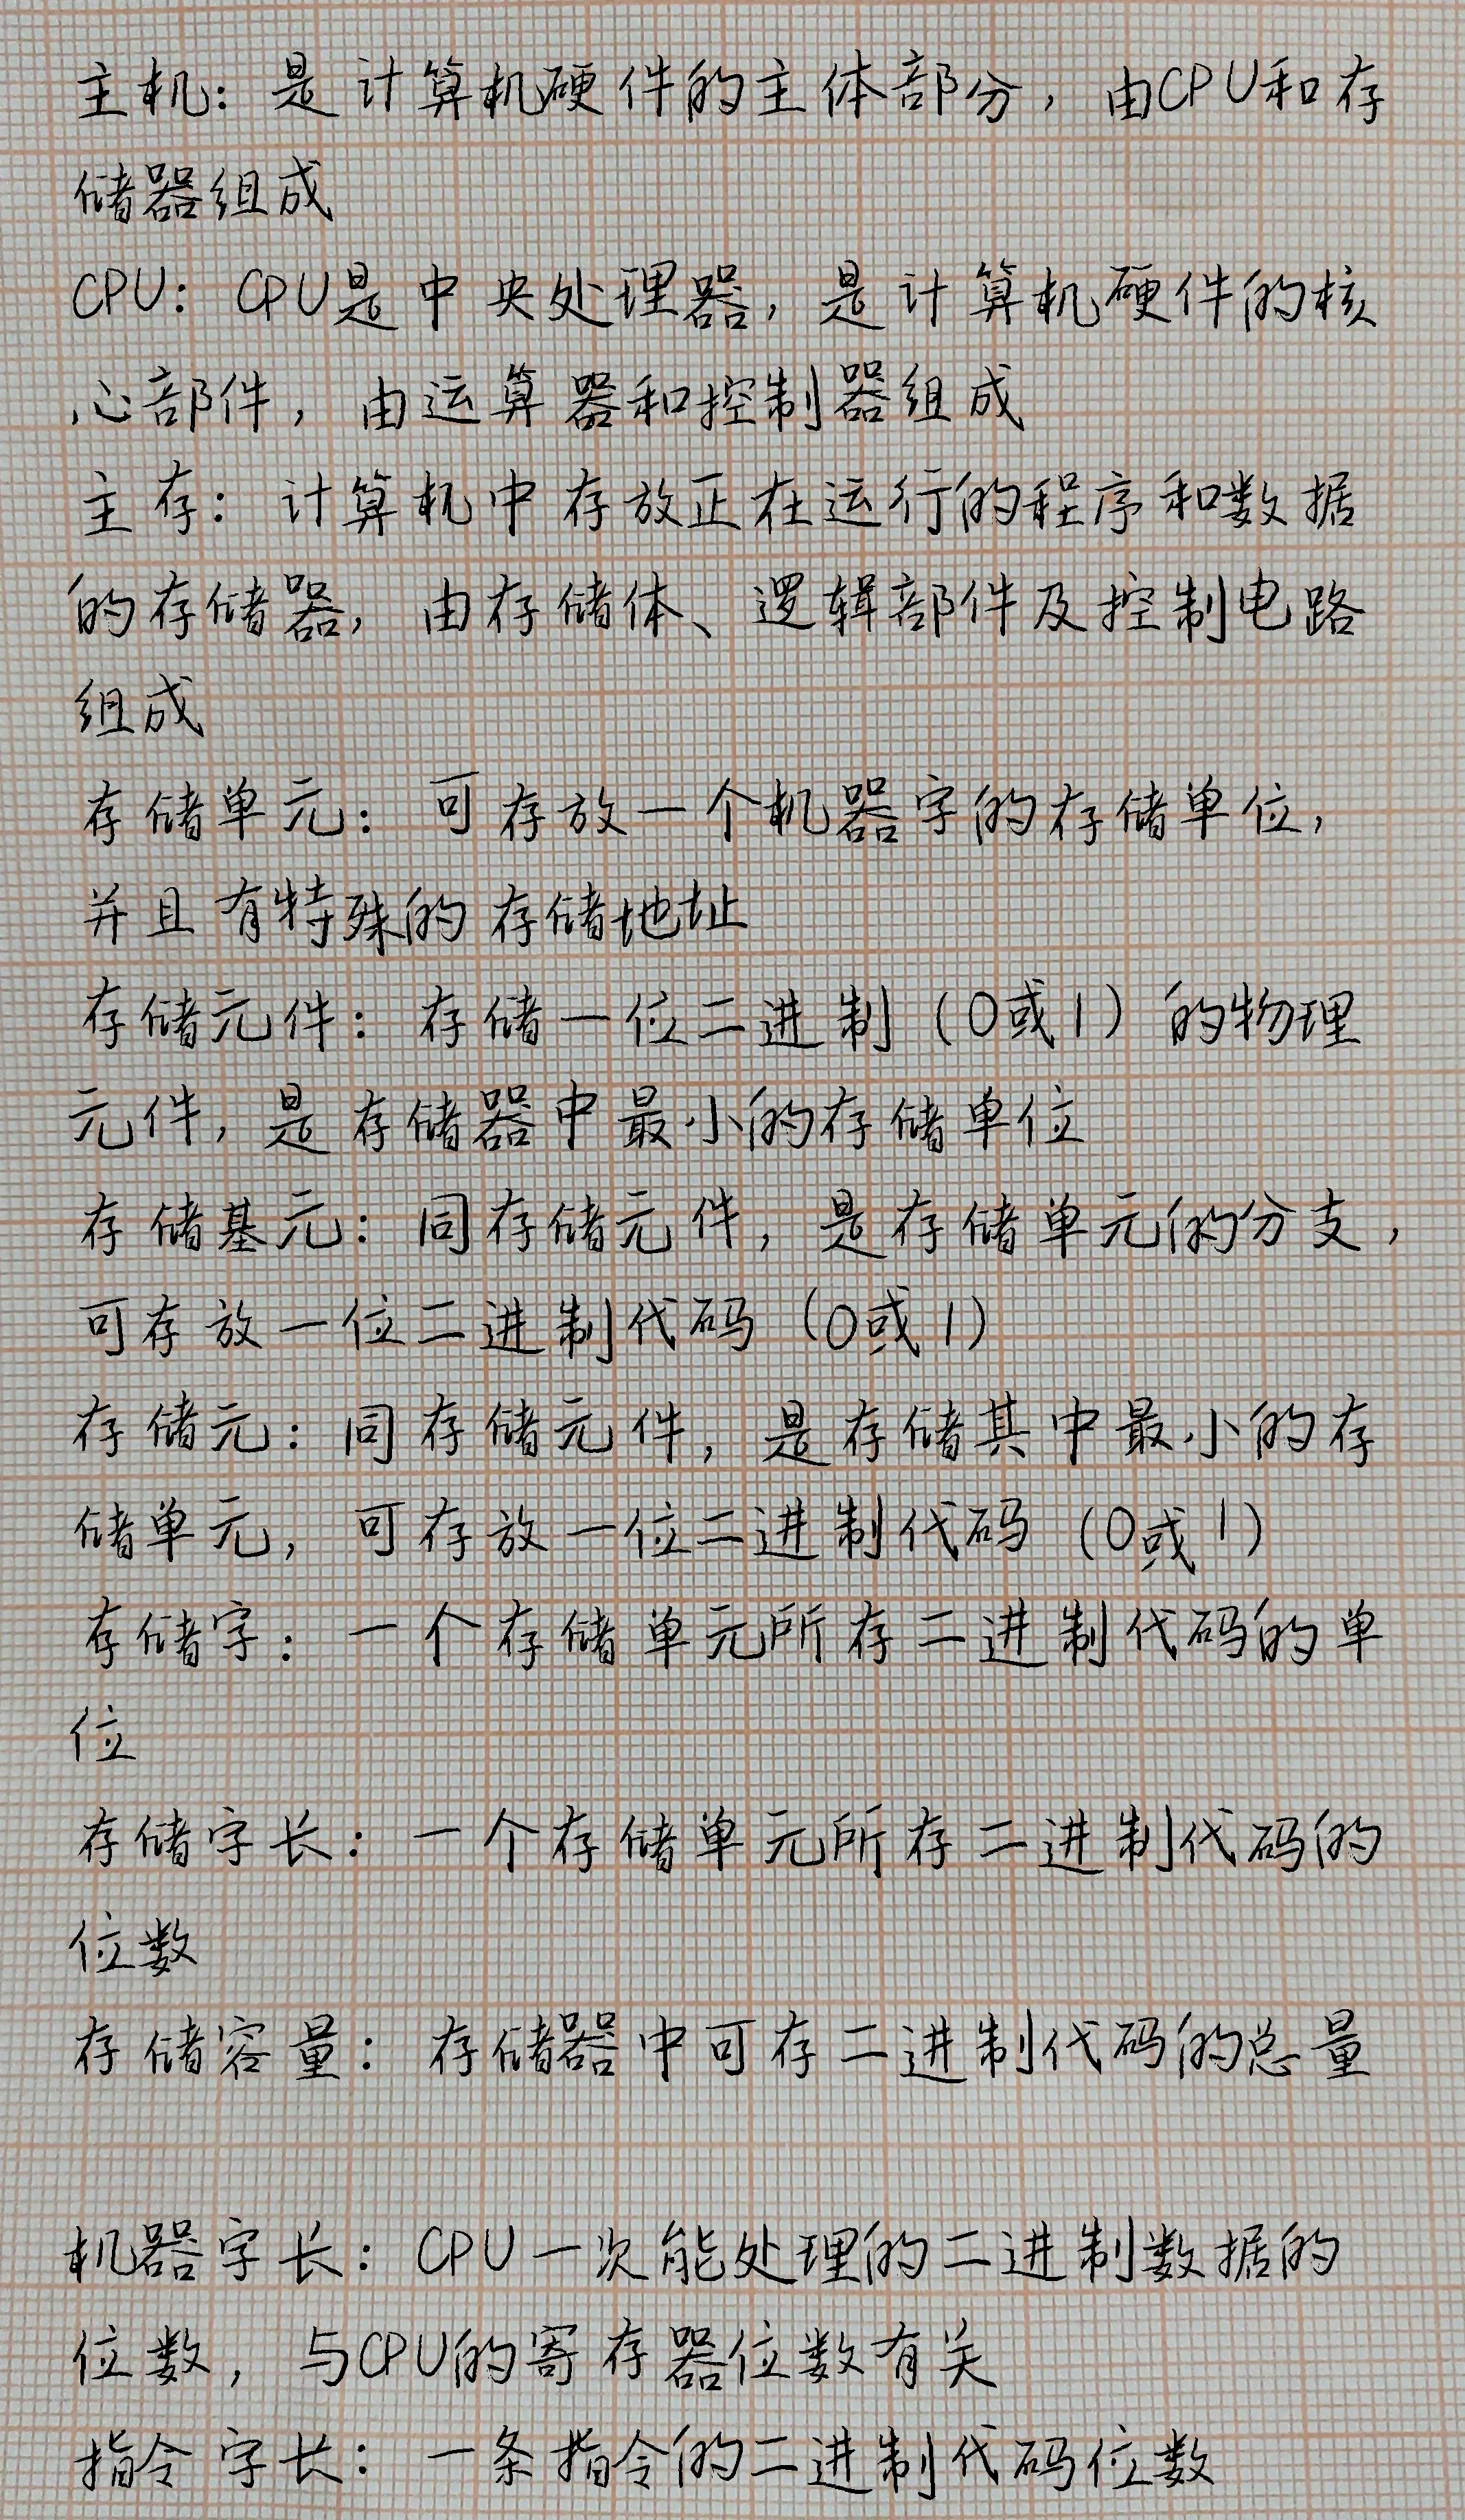 主机：是计算机硬件的主体部分，由CPU和存
储器组成
CPU：CPU是中央处理器，是计算机硬件的核
心部件，由运算器和控制器组成
主存：计算机中存放正在运行的程序和数据
的存储器，由存储体、逻辑部件及控制电路
组成
存储单元：可存放一个机器字的存储单位，
并且有特殊的存储地址
存储元件：存储一位二进制（0或1）的物理
元件，是存储器中最小的存储单位
存储基元：同存储元件，是存储单元的分支，
可存放一位二进制代码（0或1）
存储元：同存储元件，是存储其中最小的存
储单元，可存放一位二进制代码（0或1）
存储字：一个存储单元所存二进制代码的单
位
存储字长：一个存储单元所存二进制代码的
位数
存储容量：存储器中可存二进制代码的总量
机器字长：CPU一次能处理的二进制数据的
位数，与CPU的寄存器位数有关
指令字长：一条指令的二进制代码位数